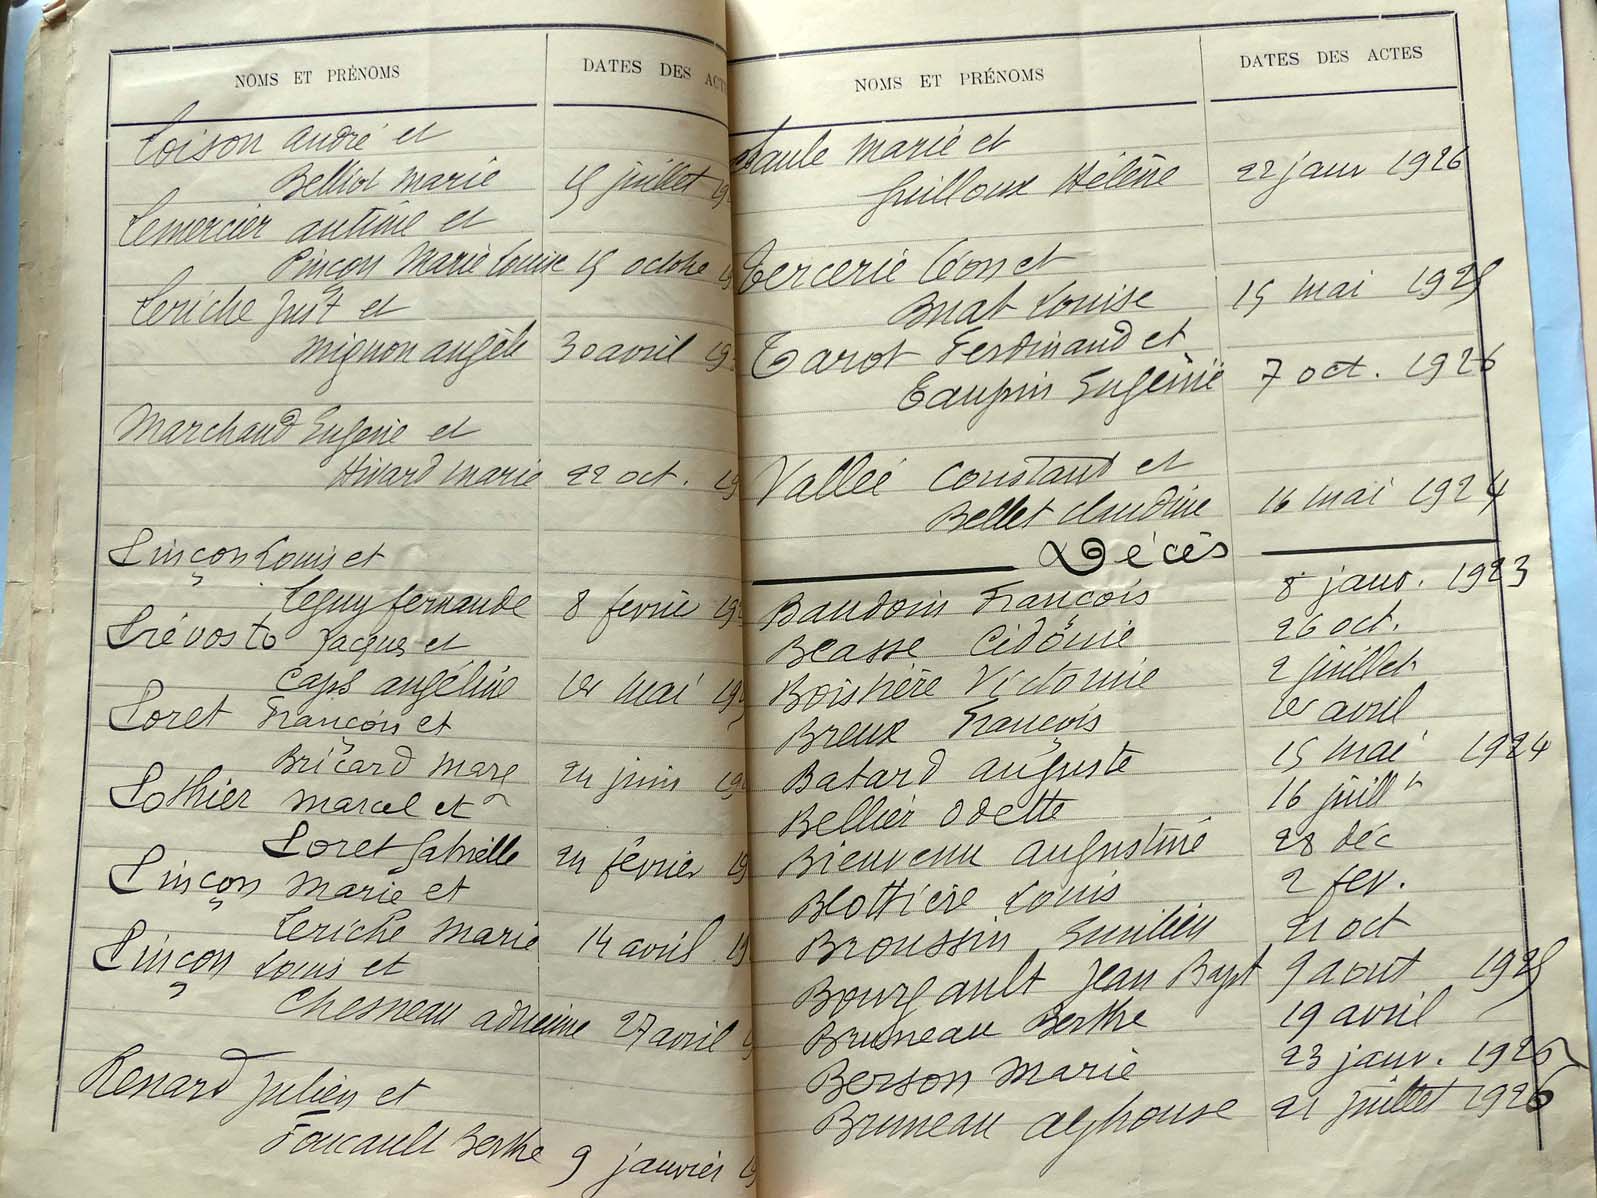 NOMS ET PRÉNOMS DATES DES ACT
Loison André et
Belliot Marie 15 juillet 19
Lemercier antime et
Pinçon Marie Louise 15 octobre 19
Leriche Just et
Mignon angèle 30 avril 19
Marchand Eugène et
Hivard Marie 22 oct. 19
Pinçon Louis et
Leguy fernande 8 fevrier 19
Prévosto Jacques et
Caps angéline 1er mai 19
Poret François et
Bricard 24 juin 19
Pothier Marcel et
Poret Gabrielle 24 février 19
Pinçon Marie et
Leriche Marie 14 avril 19
Pinçon Louis et
Chesneau adrienne 27 avril 19
Renard Julien et
Foucault Berthe 9 janvier 19
NOMS ET PRÉNOMS DATES DES ACTES
Marie et
Guilloux Hélène 22 janv 1926
Tercerie Léon et
Buat Louise 15 mai 1925
Tarot Ferdinand et
Taupin Eugénie 7 oct. 1926
Vallée Constant et
Bellet Claudine 16 mai 1924
Décès
Baudoin François 8 janv. 1923
Beasse Cidonie 26 oct.
Boistière Victorine 2 juillet
Breux François 1er avril
Batard auguste 15 mai 1924
Bellier Odette 16 juillt
Bienvenu augustine 28 déc
Blottière Louis 2 fev.
Broussin Emilien 21 oct
Bourgault Jean Bapt 9 aout 1925
Bruneau Berthe 19 avril
Berson Marie 23 janv. 1926
Bruneau alphonse 21 juillet 1926